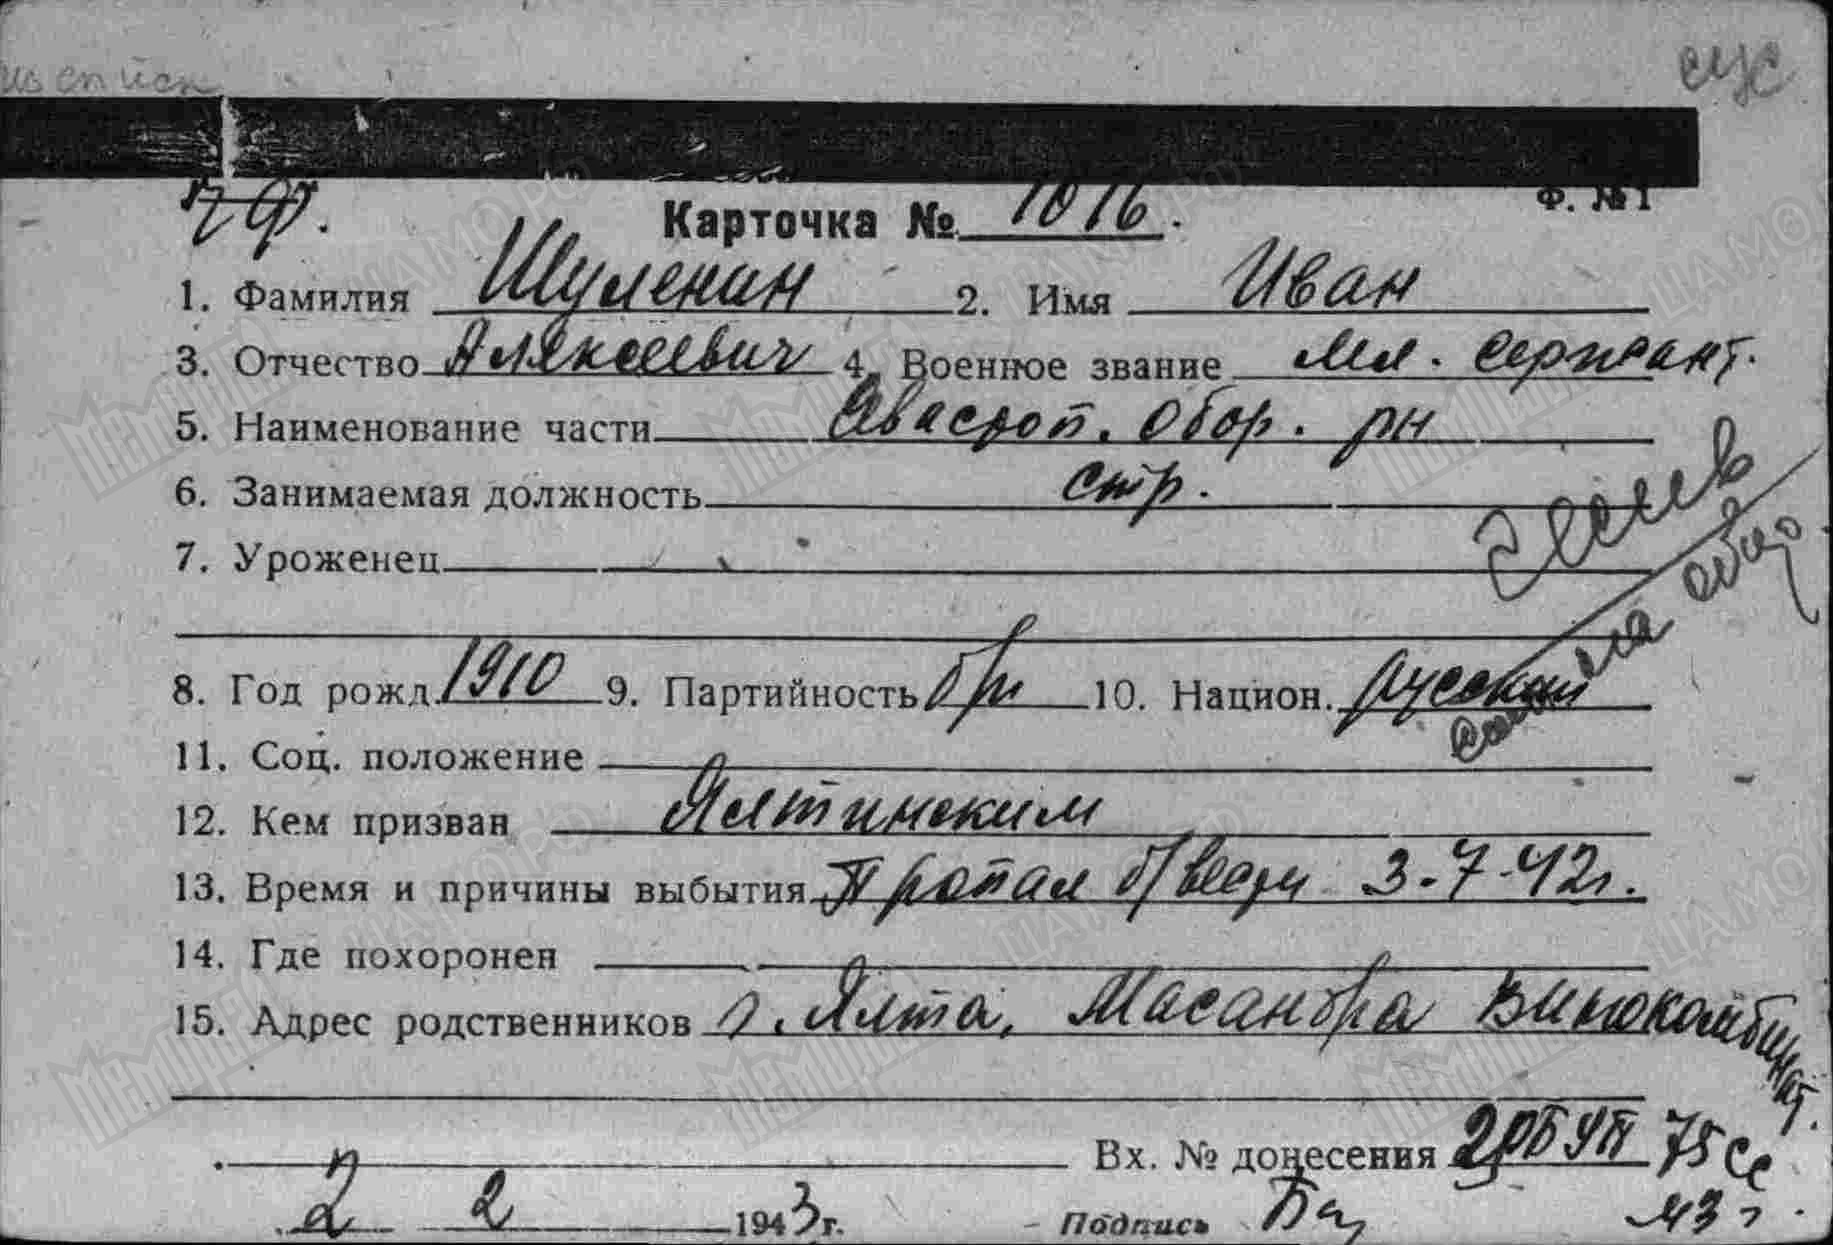 Ф. №1
Карточка № 1016.
1. Фамилия Шуленин 2. Имя Иван
3. Отчество Алексеевич 4. Военное звание Мл. сержант.
5. Наименование части Севастоп. Обор. рн
6. Занимаемая должность стр.
7. Уроженец
8. Год рожд. 1910 9. Партийность б/п 10. Национ. русский
11. Соц. положение
12. Кем призван Ялтинским
13. Время и причины выбытия Пропал б/вести 3-7-42г.
14. Где похоронен
15. Адрес родственников г. Ялта, Масандра Винокомбинат.
Вх. № донесения УП 75сс
2 2 1943г. Подпись 43г.